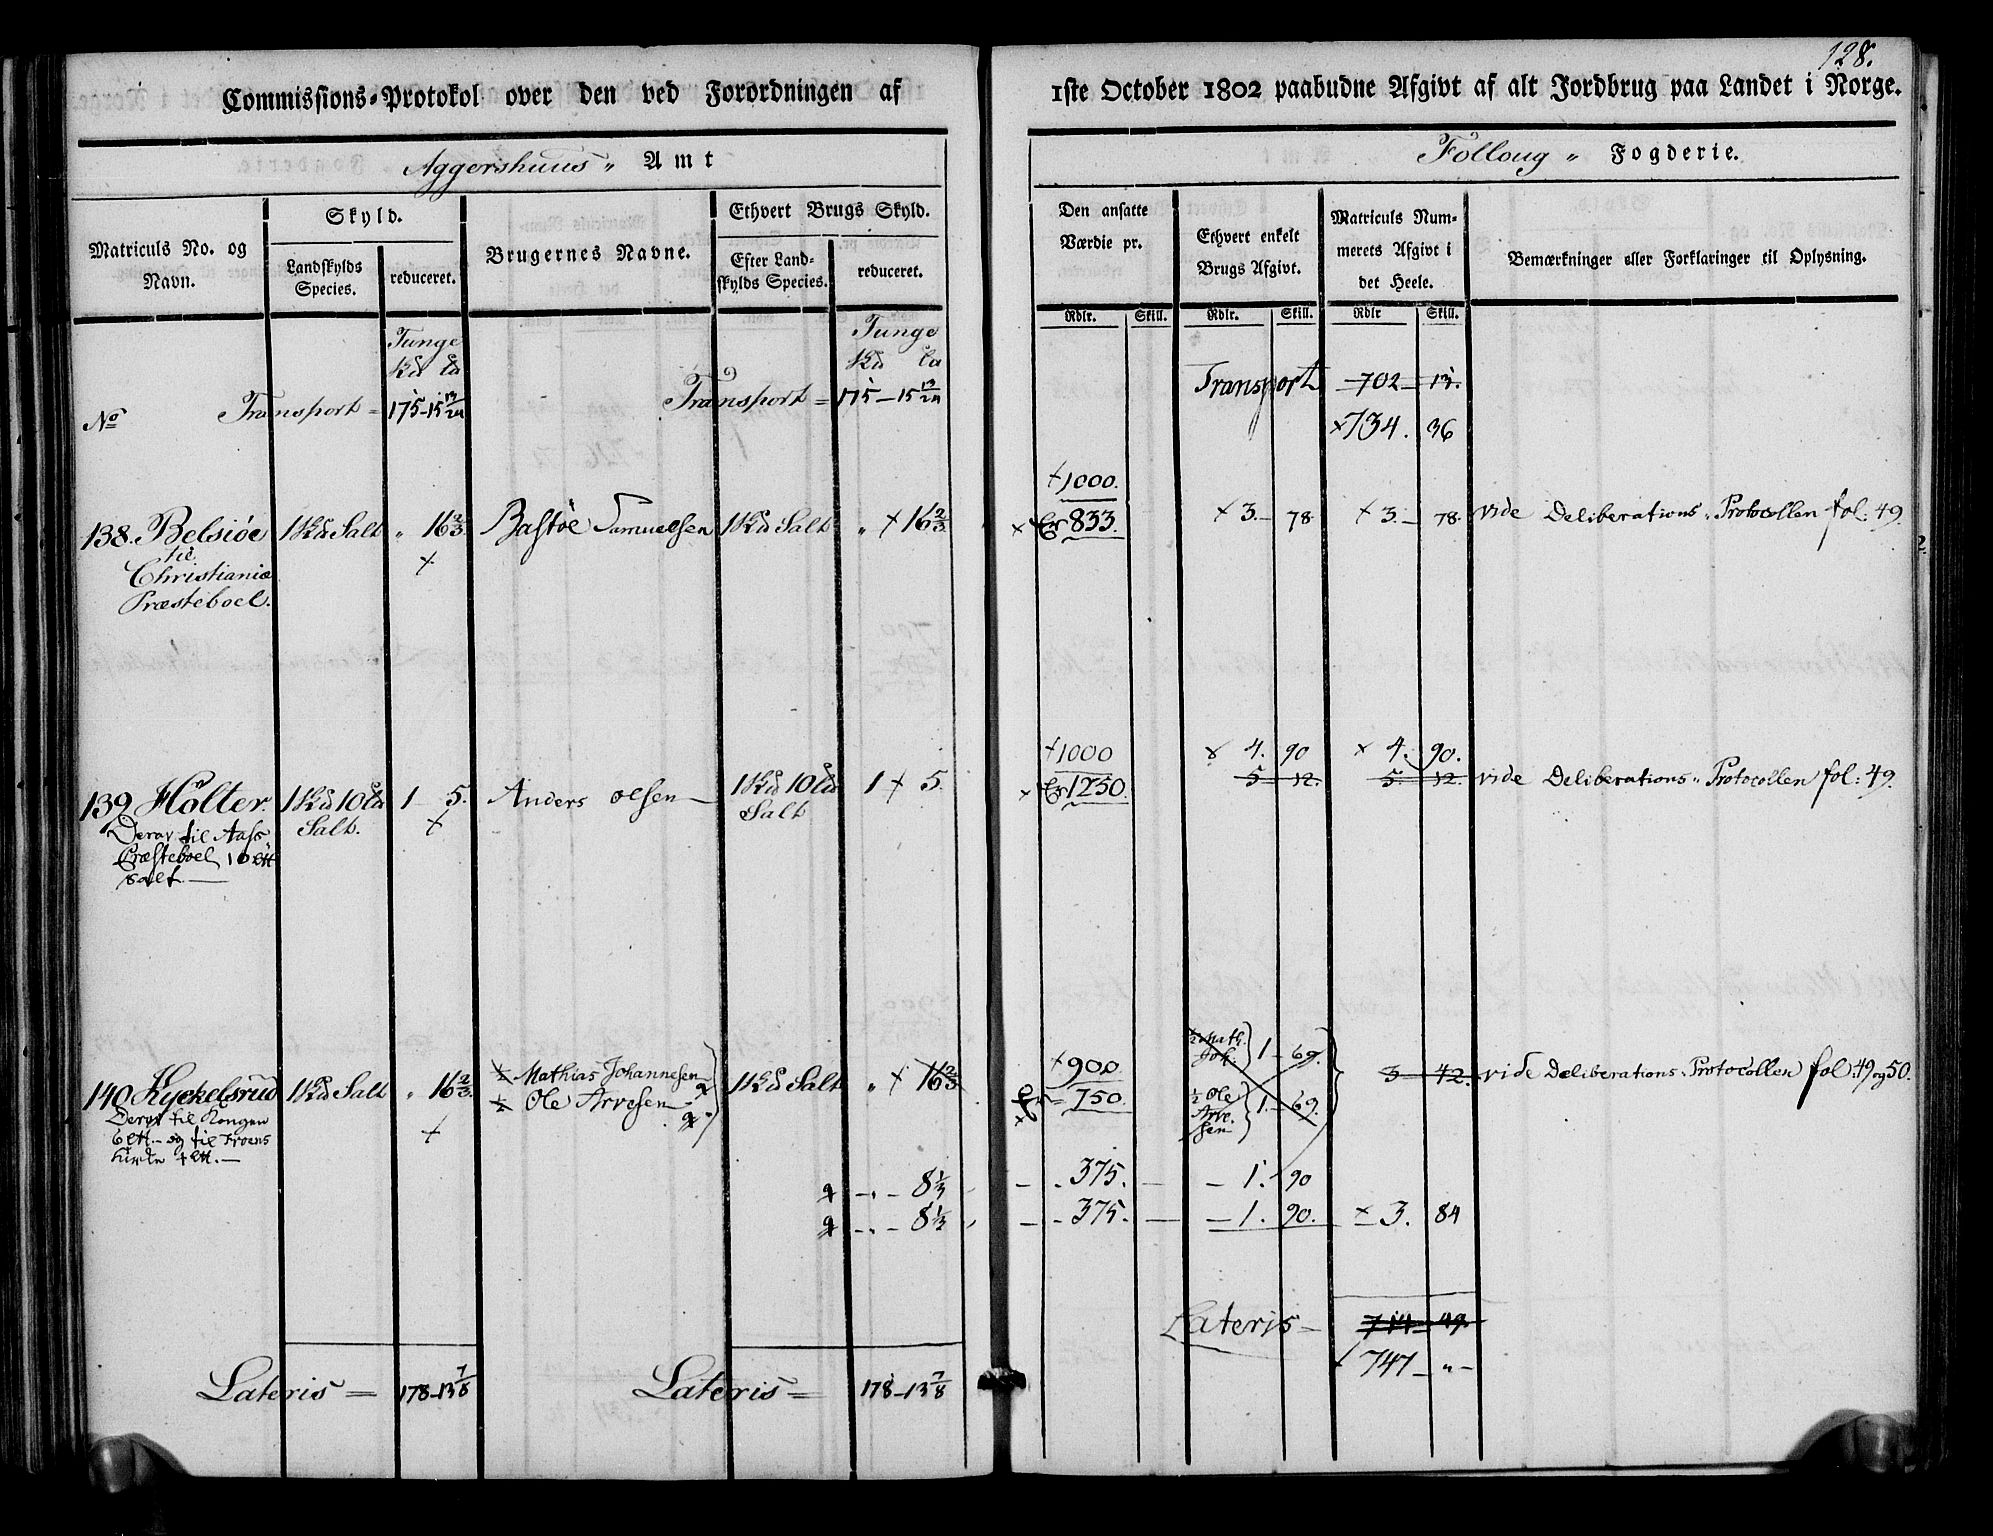 128.
Commissions-Protokol over den ved Forordningen af 1ste October 1802 paabudne Afgivt af alt Jordbrug paa Landet i Norge.
Aggershuus „ Amt
Folloug „ Fogderie.
Matriculs No. og Navn.
Skyld.
Landskylds Species.
reduceret.
Brugernes Navne.
Ethvert Brugs Skyld.
Efter Land-
skylds Species.
reduceret.
Den ansatte
Værdie pr.
Ethvert enkelt
Brugs Afgivt.
Matriculs Num-
merets Afgivt i
det Heele.
Bemærkninger eller Forklaringer til Oplysning.
Rdlr. Skill. Rdlr. Skill. Rdlr Skill.
Tunge
Tunge
No Transport = 175-15 13/24 Transport = 175-15 13/24 Transport 702 13.
×734. 36
+1000.
138. Belsiöe 1 Salt „ 16 2/3. Bastöe Samuelsen 1 Salt „ + 16 2/3. × 833. × 3.- 78. × 3.- 78. vide Deliberations „ Protocollen fol: 49.
til
Christiania
Præsteboel.
+1000 × 4. 90 × 4. 90.
139. Hölter. 1 10 1 - 5. Anders Olsen 1 10 1 + 5. × 1250. 5 12. 5. 12. vide Deliberations „ Protocollen fol: 49.
Salt. Salt
Derav til Aass
Præsteboel 10
Salt.
140. Kyckelsrud 1 Salt „ 16 2/3. 1/2 Mathias Johannesen 1 Salt „ + 16 2/3 +900. 1/2 Math. Joh. 1 - 69. 3 - 42. vide Deliberations „ Protocollen fol: 49 og 50.
1/2 Ole Arvesen 750. 1/2 Ole Arve-
sen 1 - 69.
Derav til Kongen
6 - og til Froens
Kirke 4
8 1/3 375. 1. 90
8 1/3 375. 1. 90. × 3. 84
Lateris = 49.
747 - „ -
Lateris = 178-13 7/8 Lateris = 178-13 7/8